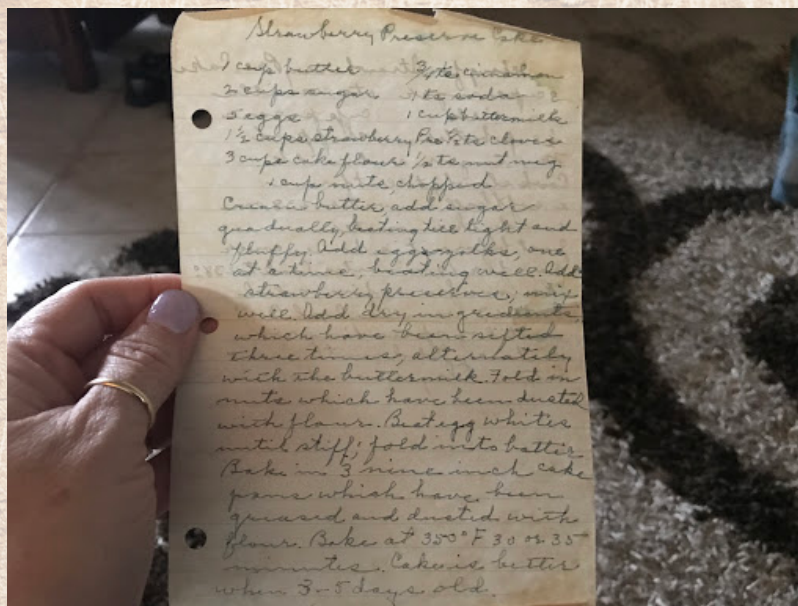 Strawberry Preserve Cake
1 cup butter 3/4 ts cinnamon
2 cups sugar 1 ts soda
5 eggs 1 cup buttermilk
1 1/2 cups strawberry Pre 1/2 ts cloves
3 cups cake flour 1/2 ts nutmeg
1 cup nuts, chopped
Cream butter, add sugar
gradually, beating till light and
fluffy. Add egg yolks, one
at a time, beating well. Add
strawberry preserves, mix
well. Add dry ingredients,
which have been sifted
three times, alternately
with the buttermilk. Fold in
nuts which have been dusted
with flour. Beat egg whites
until stiff; fold into batter
Bake in 3 nine inch cake
pans which have been
greased and dusted with
flour. Bake at 350° F 30 or 35
minutes. Cake is better
when 3-5 days old.